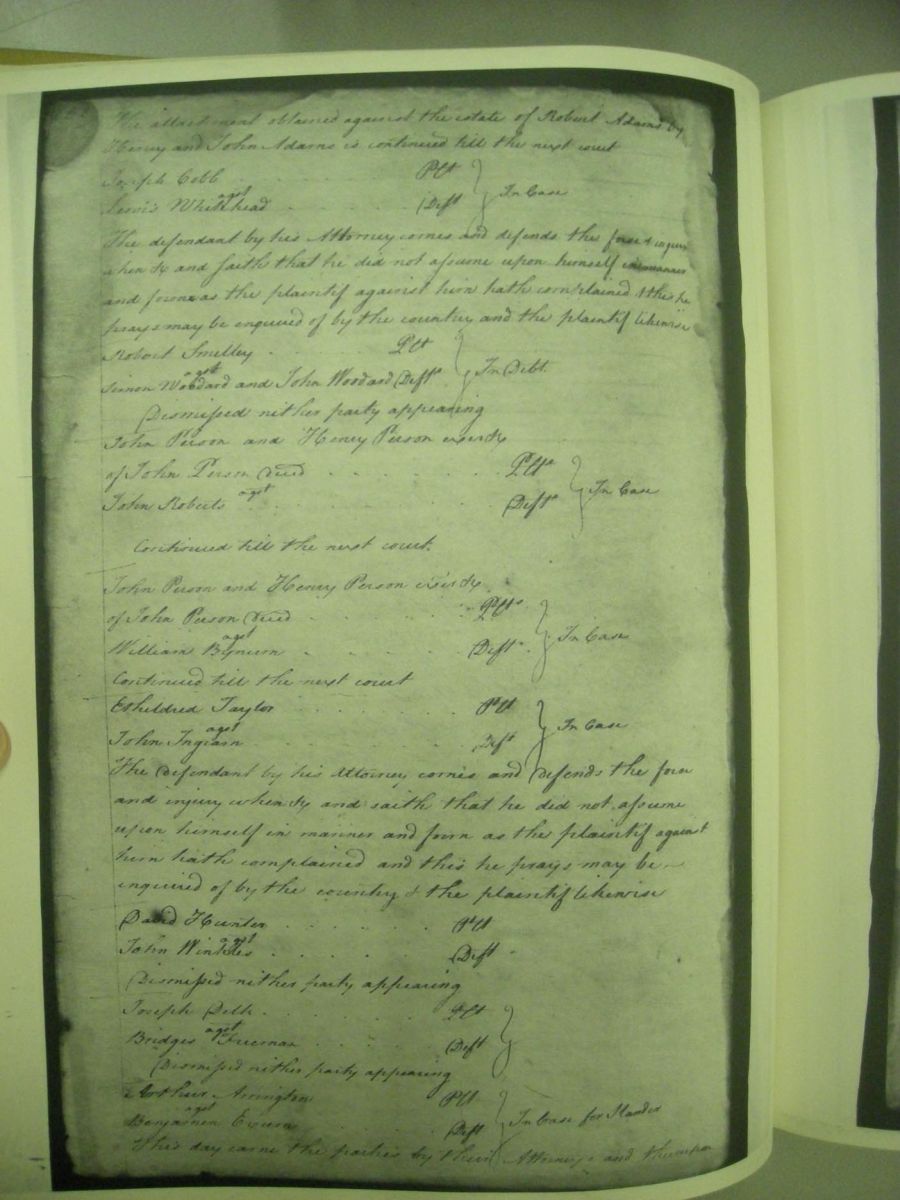 The attachment obtained against the estate of Robert Adams by
Henry and John Adams is continued till the next court
Joseph Cobb . . . . Plt } In Case
agst
Lewis Whitehead . . . . Deft
The defendant by his Attorney comes and defends the force & injury
when &c and saith that he did not assume upon himself in manner
and form as the plaintif against him hath complained & this he
prays may be enquired of by the country and the plaintif likewise
Robert Smelley . . . . Plt } In Debt
agst
Simon Woodard and John Woodard Defts
Dismissed nither party appearing
John Person and Henry Person exers &c
of John Person Decd . . . . Plts } In Case
agst
John Roberts . . . . Deft
Continued till the next court.
John Person and Henry Person exers &c
of John Person Decd . . . . Plts } In Case
agst
William Bynum . . . . Deft
Continued till the next court
Etheldred Taylor . . . . Plt } In Case
agst
John Ingram . . . . Deft
The Defendant by his Attorney comes and Defends the force
and injury when &c and saith that he did not assume
upon himself in manner and form as the plaintif against
him hath complained and this he prays may be
enquired of by the country & the plaintif likewise
David Hunter . . . . Plt
agst
John Winkles . . . . Deft
Dismissed nither party appearing
Joseph Delk . . . . Plt }
agst
Bridges Freeman . . . . Deft
Dismissed nither party appearing
Arthur Arrington Plt } In Case for Slander
agst
Benjamin Deft
This day came the parties by their Attorneys and thereupon